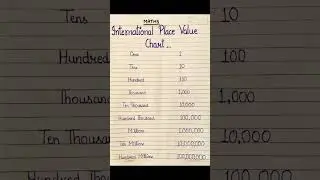 MATHS
International Place Value
Chart
Ones 1
Tens 10
Hundred 100
Thousand 1,000
Ten Thousand 10,000
Hundred Thousand 100,000
Millions 1,000,000
Ten Millions 10,000,000
Hundred Millions 100,000,000
Tens
Hundred
Thousand
Ten Thousand
Hundred Thous
10
100
1,000
10,000
100,000